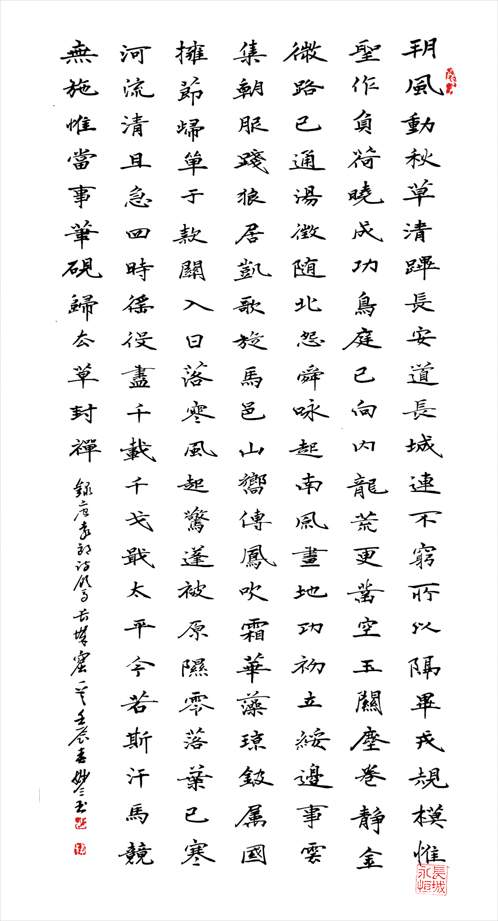 朔風動秋草清蹕長安道長城連不窮所以隔畢戎規模惟
聖作負荷曉成功鳥庭已向内龍荒更凿空玉關塵卷静金
微路已通湯徵随北怨舜咏起南風畫地功初立綏邊事雲
集朝服踐狼居凱歌旋馬邑山嚮傳鳳吹霜華藻琼鈒属國
擁節歸單于款關入日落寒風起驚蓬被原隰零落葉已寒
河流清且急四時徭役盡千載干戈戢太平今若斯汗馬競
無施惟當事筆硯歸去草封禪
錄唐袁朗詩飲馬長城窟一首壬辰春妙云书
長城永恒